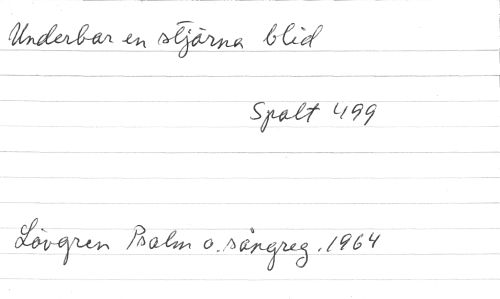 Underbar en stjärna blid
Spalt 499
Lövgren Psalm o. sångreg. 1964